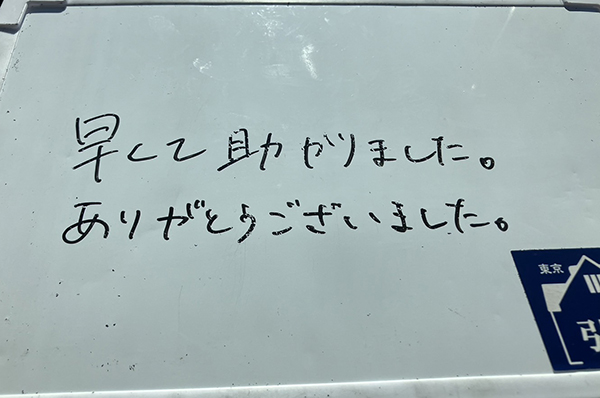 早くて助かりました。
ありがとうございました。
東京